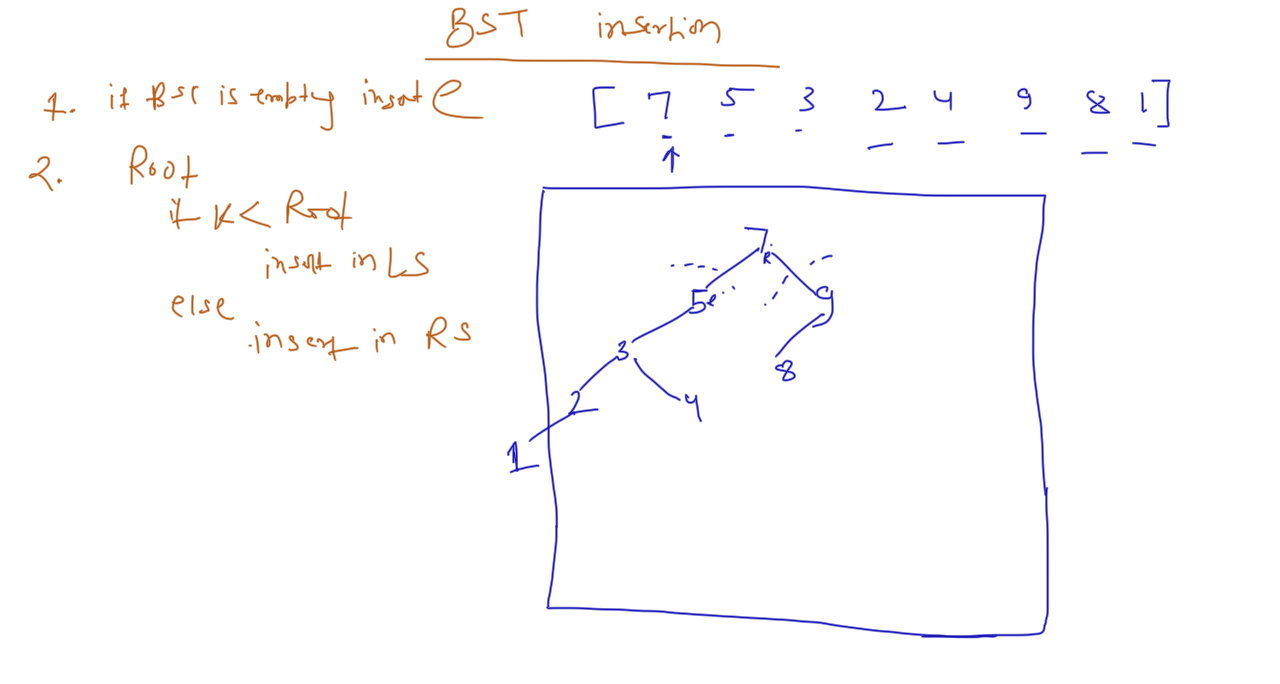 BST insertion
1. if BST is empty insert e
[ 7 5 3 2 4 9 8 1 ]
2. Root
if K < Root
insert in LS
else
insert in RS
7
R
5 e 9
3 8
2 4
1